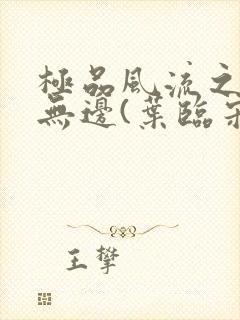 極品風流之
無邊(葉臨
王攀